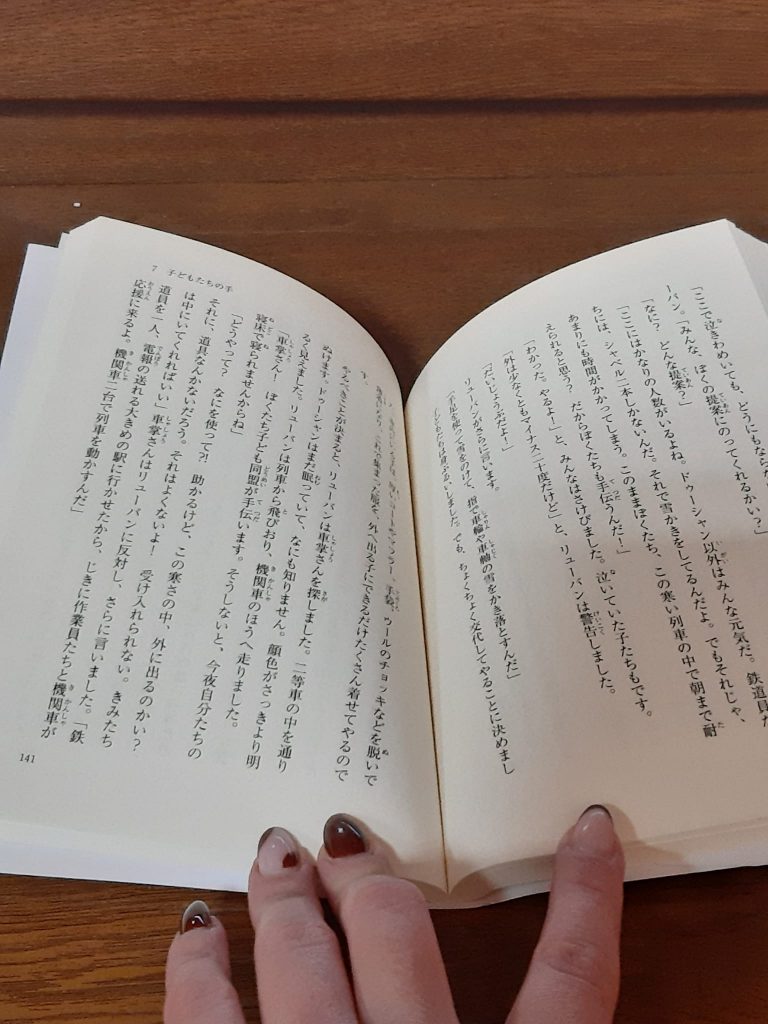 「ここで泣きわめいても、どうにもならな
ーバン。「みんな、ぼくの提案にのってくれるかい？」
「なに？　どんな提案？」
「ここにはかなりの人数がいるよね。ドゥーシャン以外はみんな元気だ。鉄道員だ
ちには、シャベル二本しかないんだ。それで雪かきをしてるんだよ。でもそれじゃ、
あまりにも時間がかかってしまう。このままぼくたち、この寒い列車の中で朝まで耐
えられると思う？　だからぼくたちも手伝うんだ！」
「わかった。やるよ！」と、みんなはさけびました。泣いていた子たちもです。
「外は少なくともマイナス二十度だけど」と、リューバンは警告しました。
「だいじょうぶだよ！」
リューバンがさらに言います。
「手足を使って雪をのけて、指で車輪や車軸の雪をかき落とすんだ」
子どもたちは身ぶるいしました。でも、ちょくちょく交代してやることに決めまし
7　子どもたちの手
手袋、ウールのチョッキなどを脱いで
外へ出る子にできるだけたくさん着せてやるので
やるべきことが決まると、リューバンは車掌さんを探しました。二等車の中を通り
ぬけます。ドゥーシャンはまだ眠っていて、なにも知りません。顔色がさっきより明
るく見えました。リューバンは列車から飛びおり、機関車のほうへ走りました。
「車掌さん！　ぼくたち子ども同盟が手伝います。そうしないと、今夜自分たちの
寝床で寝られませんからね」
「どうやって？　なにを使って?!　助かるけど、この寒さの中、外に出るのかい？
それに、道具なんかないだろう。それはよくないよ！　受け入れられない。きみたち
は中にいてくれればいい」車掌さんはリューバンに反対し、さらに言いました。「鉄
道員を一人、電報の送れる大きめの駅に行かせたから、じきに作業員たちと機関車が
応援に来るよ。機関車二台で列車を動かすんだ」
141